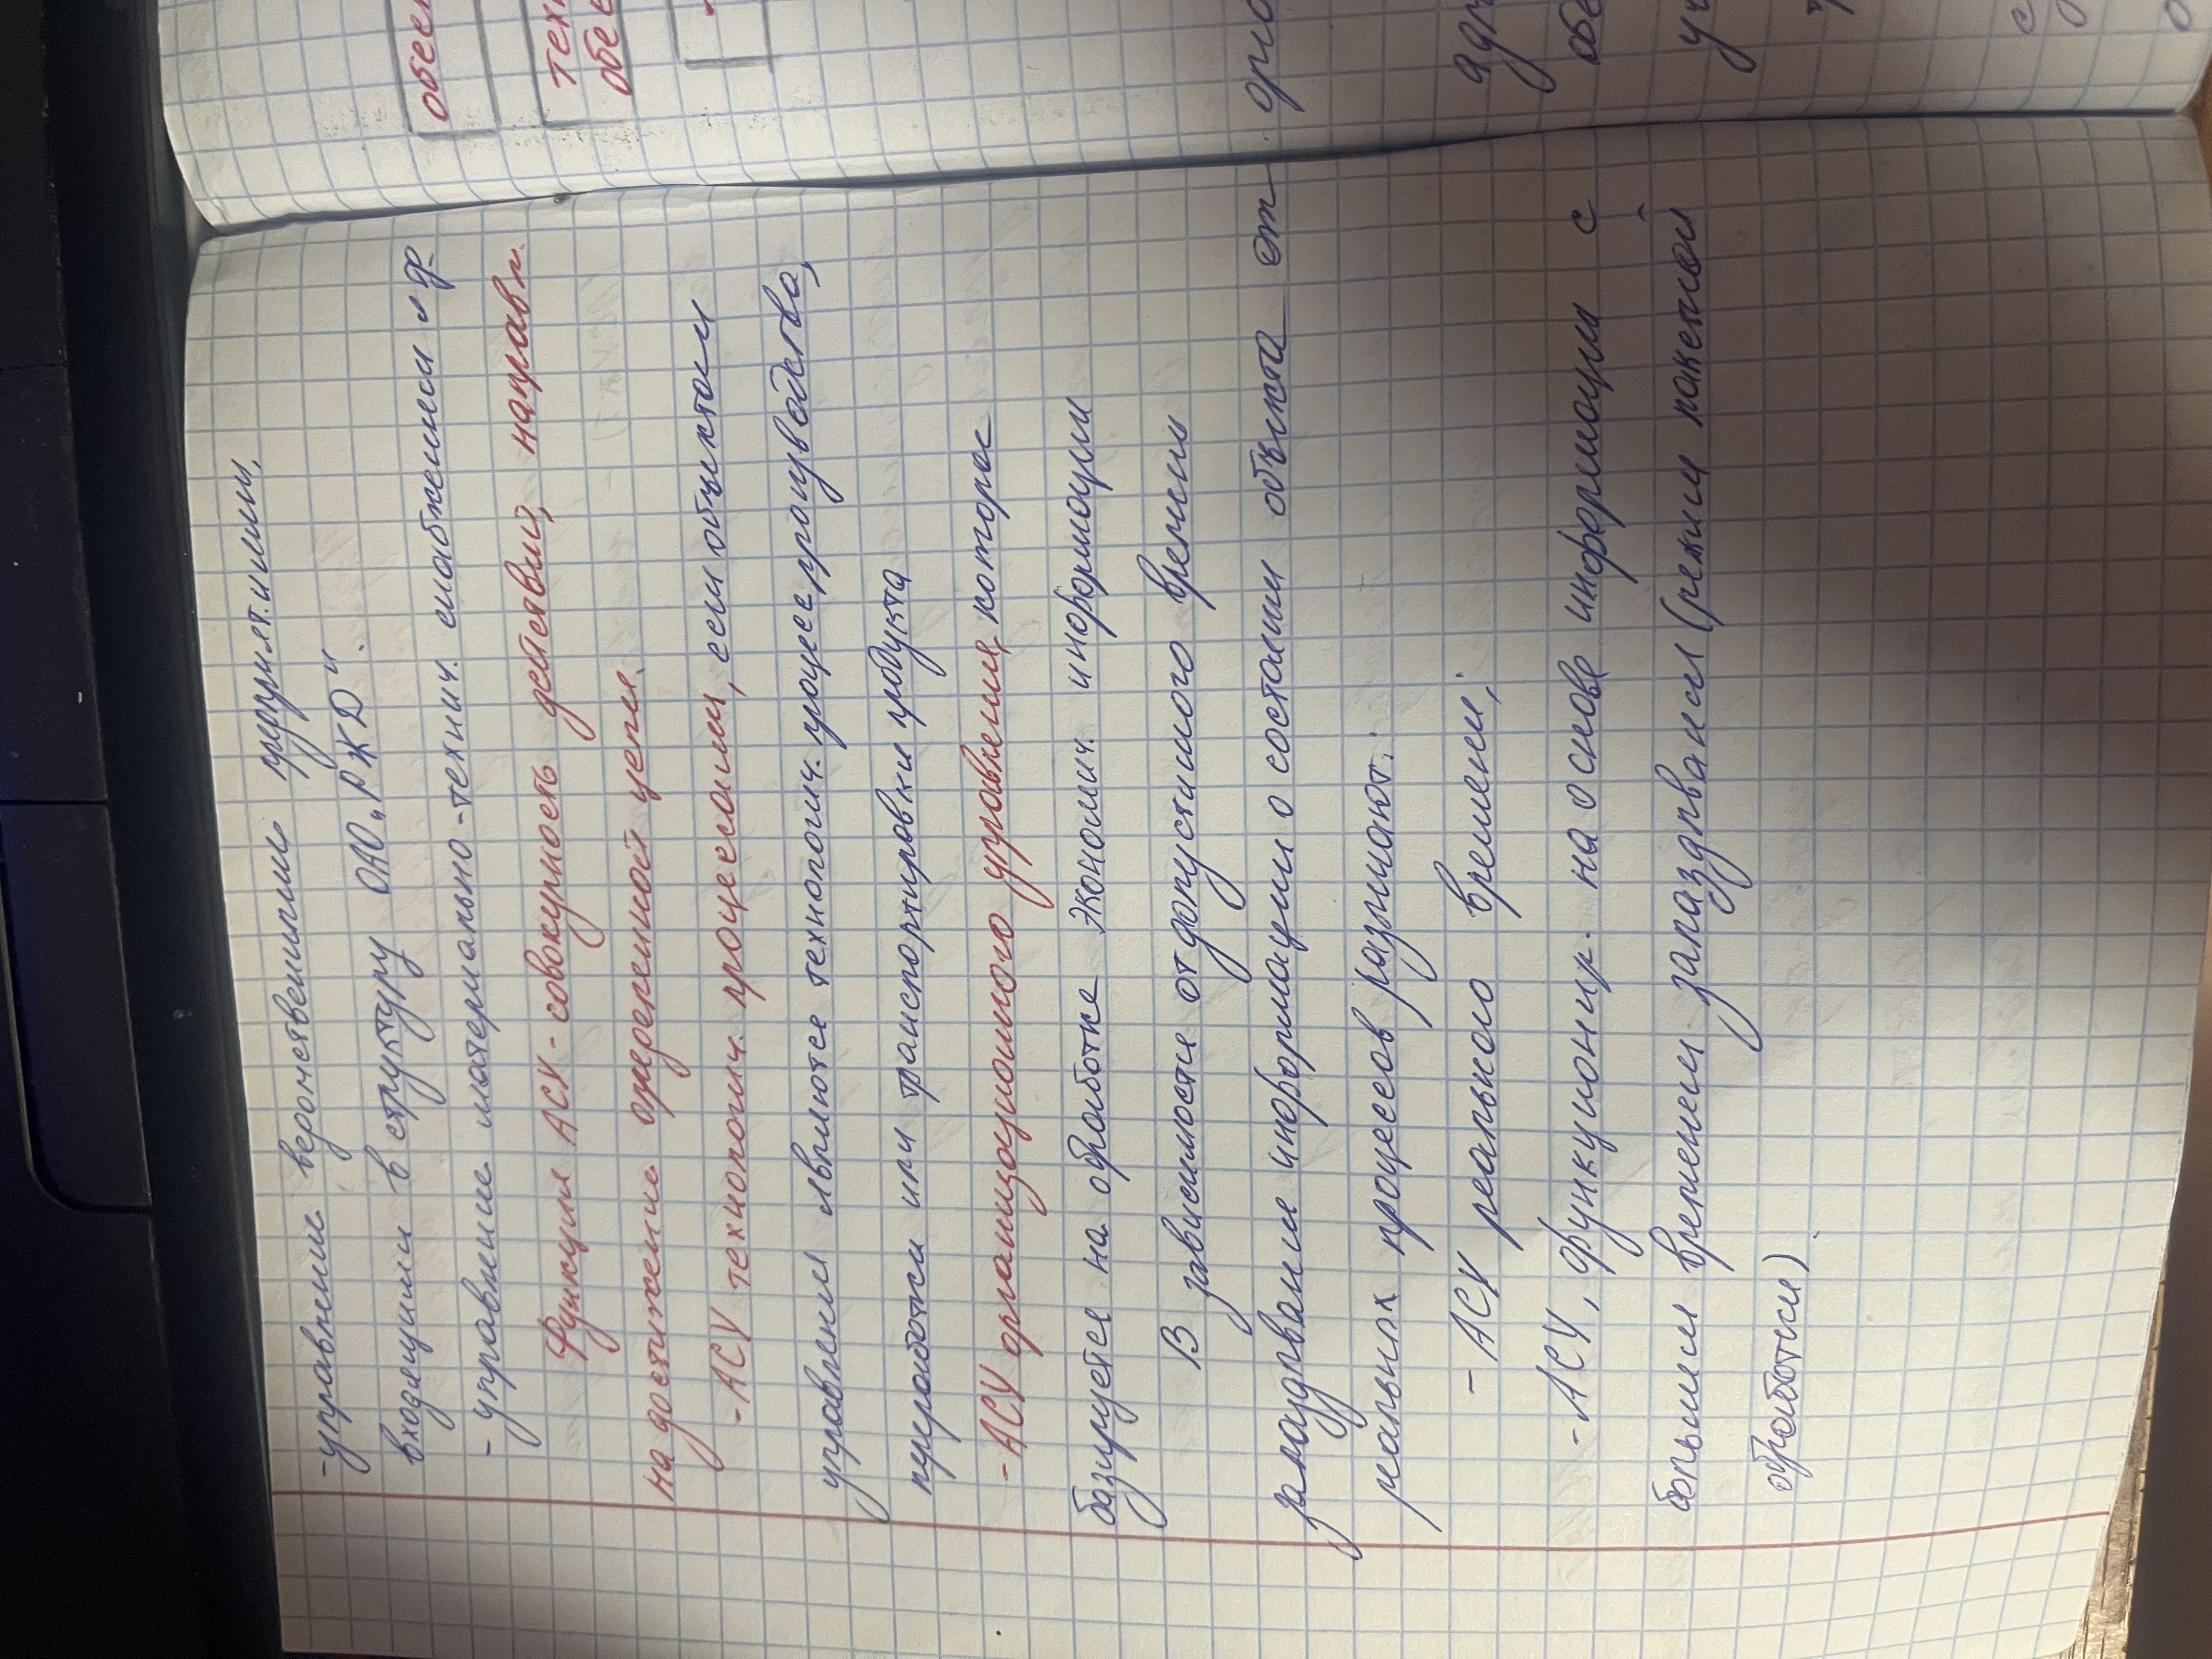 -управление ведомственными предприятиями,
входящими в структуру ОАО „РЖД".
-управление материально-технич. снабжением и др.
Функция АСУ-совокупность действий, направл.
на достижение определенной цели.
-АСУ технологич. процессами, если объектом
управления является технологич. процесс производства,
переработки или транспортировки продукта
-АСУ организационного управления, которое
базируется на обработке экономич. информации
В зависимости от допустимого времени
запаздывания информации о состоянии объекта от
реальных процессов различают:
- АСУ реального времени;
-АСУ, функционир. на основе информации с
большим временем запаздывания (режим пакетной
обработки)
обес
тех
обе